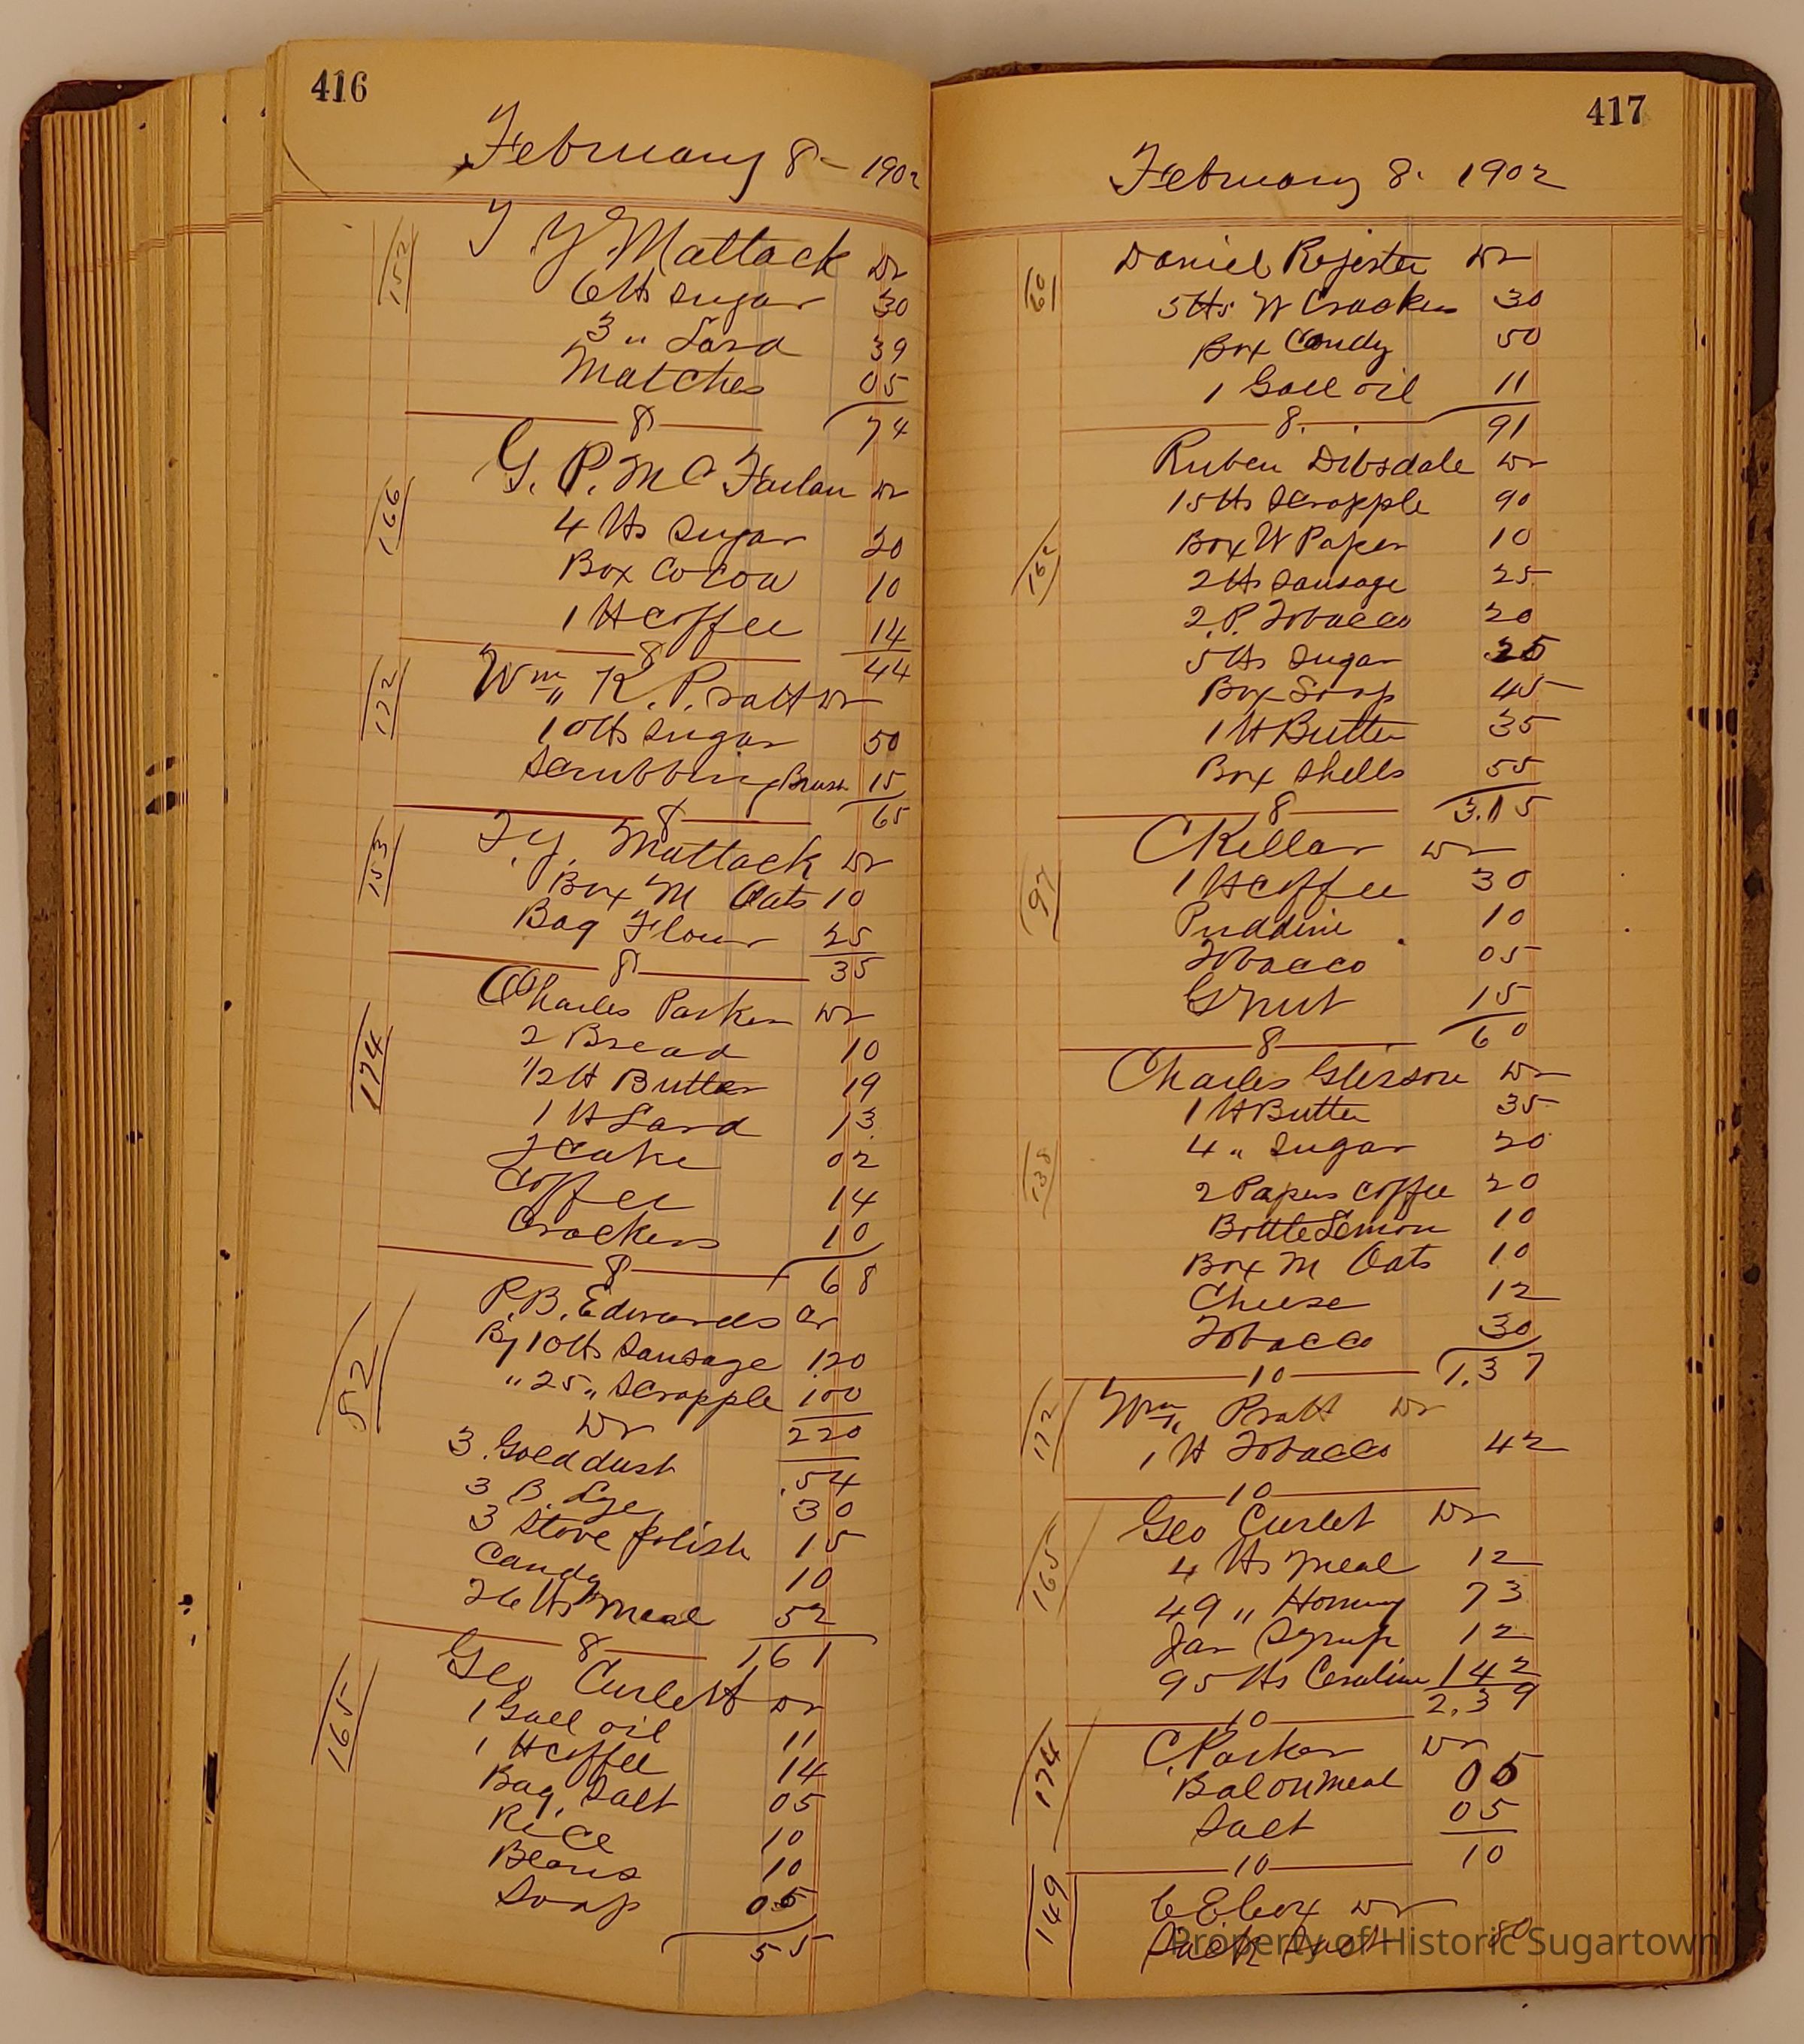 416
February 8 - 1902
152
T Y Mattack Dr
6 lbs Sugar 30
3 " Lard 39
Matches 05
74
8
166
G. P. Mc Farlan Dr
4 lbs Sugar 20
Box Cocoa 10
1 lb Coffee 14
44
8
172
Wm " K. Pratt Dr
10 lbs Sugar 50
Scrubbing Brush 15
65
8
153
T. Y. Mattack Dr
Box M Oats 10
Bag Flour 25
35
8
174
Charles Parker Dr
2 Bread 10
1/2 lb Butter 19
1 lb Lard 13
Cake 02
Coffee 14
Crackers 10
68
8
52
P. B. Edwards Cr
By 10 lbs Sausage 1.20
" 25 " Scrapple 1.00
Dr 220
3 Gold dust .54
3 B. Lye 30
3 Stove polish 15
Candy 10
26 lbs Meal 52
161
8
165
Geo Curlett Dr
1 Gall oil 11
1 lb Coffee 14
Bag Salt 05
Rice 10
Beans 10
Soap 05
55
417
February 8. 1902
60
Daniel Rejester Dr
5 lbs W Crackers 30
Box Candy 50
1 Gall oil 11
91
8
Ruben Dibsdale Dr
15 lbs Scrapple 90
Box W Paper 10
2 lbs Sausage 25
2 P. Tobacco 20
5 lbs Sugar 25
Box Soap 45
1 lb Butter 35
Box Shells 55
3.15
8
97
C Kellar Dr
1 lb Coffee 30
Puddine 10
Tobacco 05
G nut 15
60
8
138
Charles Glisson Dr
1 lb Butter 35
4 " Sugar 20
2 Papers Coffee 20
Bottle Lemon 10
Box M Oats 10
Cheese 12
Tobacco 30
1.37
10
172
Wm " Pratt Dr
1 lb Tobacco 42
10
165
Geo Curlet Dr
4 lbs Meal 12
49 " Hominy 73
Jar Syrup 12
95 lbs Ceraline 142
2.39
10
174
C. Parker Dr
Bal on Meal 05
Salt 05
10
10
149
Dr
Sack Salt 80
Property of Historic Sugartown